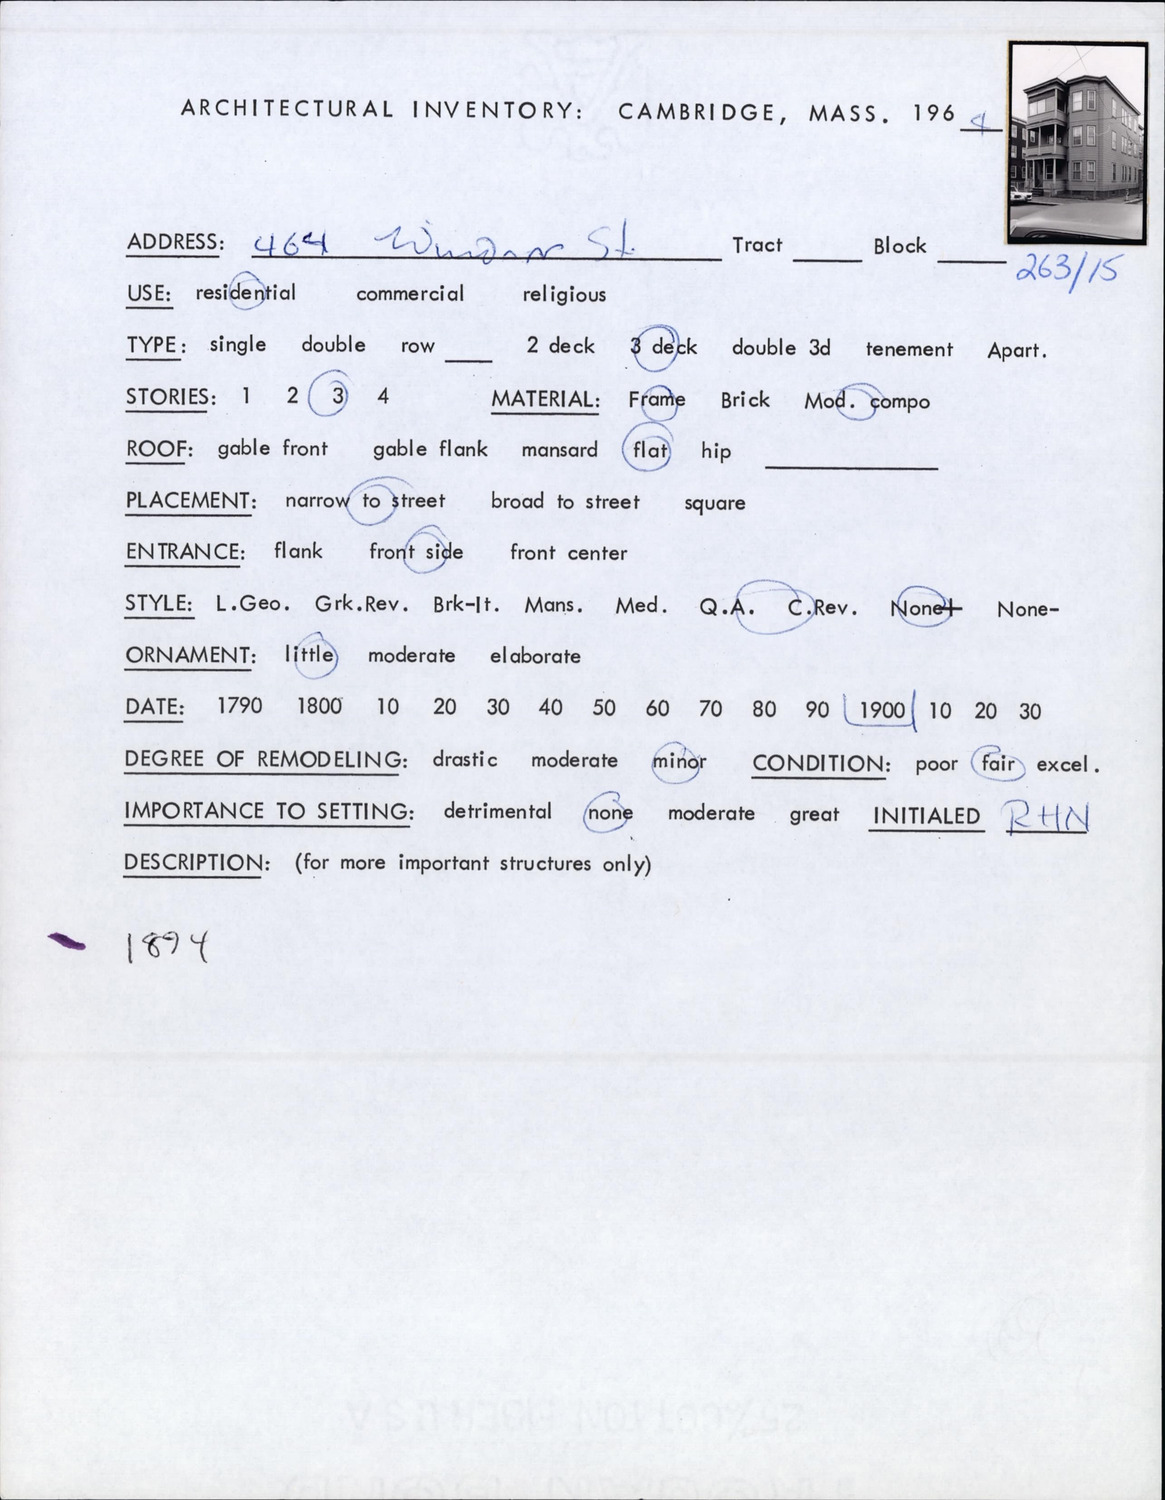 ARCHITECTURAL INVENTORY: CAMBRIDGE, MASS. 1964
ADDRESS: 464 Windsor St. Tract ____ Block ____
263/15
USE: residential commercial religious
TYPE: single double row ____ 2 deck 3 deck double 3d tenement Apart.
STORIES: 1 2 3 4 MATERIAL: Frame Brick Mod. compo
ROOF: gable front gable flank mansard flat hip ____
PLACEMENT: narrow to street broad to street square
ENTRANCE: flank front side front center
STYLE: L.Geo. Grk.Rev. Brk-It. Mans. Med. Q.A. C.Rev. None+ None-
ORNAMENT: little moderate elaborate
DATE: 1790 1800 10 20 30 40 50 60 70 80 90 1900 10 20 30
DEGREE OF REMODELING: drastic moderate minor CONDITION: poor fair excel.
IMPORTANCE TO SETTING: detrimental none moderate great INITIALED RHN
DESCRIPTION: (for more important structures only)
1894